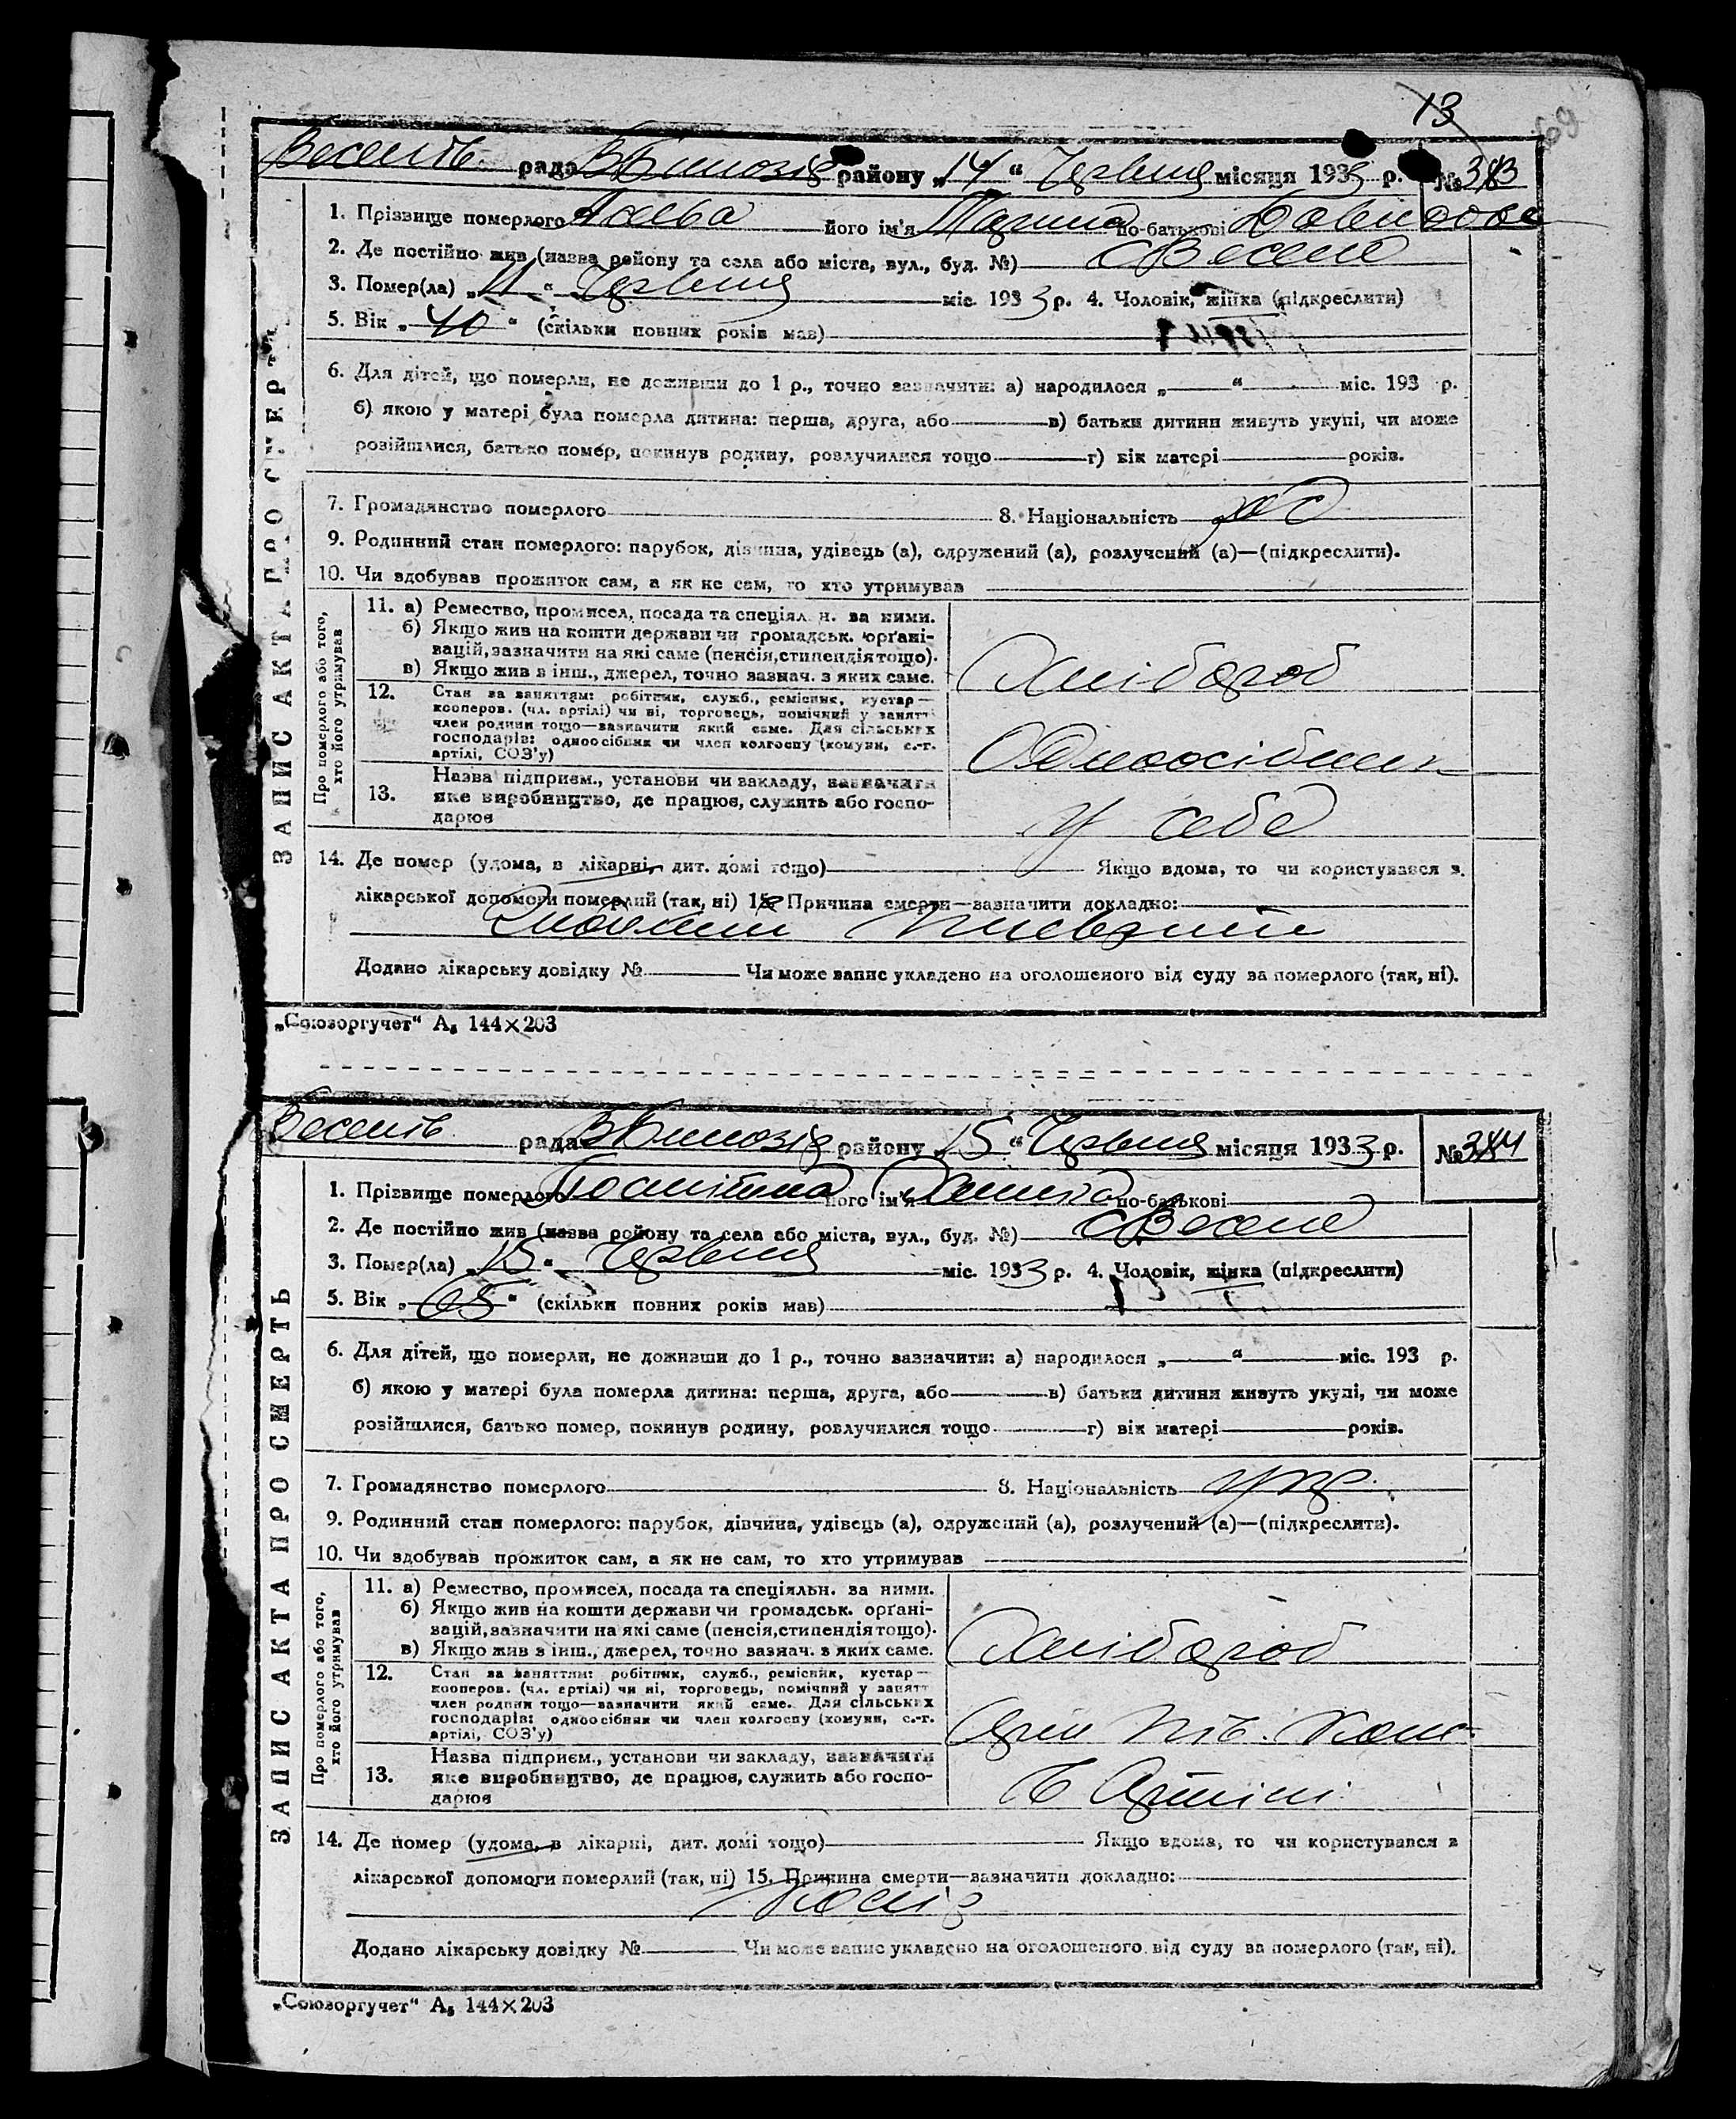 13
69
рада району „14“ Червня місяця 1933 р. № 343
1. Прізвище померлого його ім'я по-батькові
2. Де постійно жив (назва району та села або міста, вул., буд. №) с Веселе
3. Помер(ла) „11“ Червня міс. 1933 р. 4. Чоловік, жінка (підкреслити)
5. Вік „40“ (скільки повних років мав)
6. Для дітей, що померли, не доживши до 1 р., точно зазначити: а) народилося „ “ міс. 193 р.
б) якою у матері була померла дитина: перша, друга, або в) батьки дитини живуть укупі, чи може
розійшлися, батько помер, покинув родину, розлучилися тощо г) вік матері років.
7. Громадянство померлого 8. Національність
9. Родинний стан померлого: парубок, дівчина, удівець (а), одружений (а), розлучений (а)—(підкреслити).
10. Чи здобував прожиток сам, а як не сам, то хто утримував
ЗАПИС АКТА ПРО СМЕРТЬ
Про померлого або того,
хто його утримував
11. а) Ремество, промисел, посада та спеціял. н. за ними.
б) Якщо жив на кошти держави чи громадськ. орґані-
зацій, зазначити на які саме (пенсія, стипендія тощо).
в) Якщо жив з інш., джерел, точно зазнач. з яких саме.
Хлібороб
12. Стан за заняттям: робітник, служб., ремісник, кустар—
кооперов. (чл. артілі) чи ні, торговець, помічний у занятт
член родини тощо—зазначити який саме. Для сільських
господарів: одноосібник чи член колгоспу (комуни, с.-г.
артілі, СОЗ'у)
Одноосібник
13. Назва підприєм., установи чи закладу, зазначити
яке виробництво, де працює, служить або госпо-
дарює
У себе
14. Де помер (удома, в лікарні, дит. домі тощо) Якщо вдома, то чи користувався з
лікарської допомоги померлий (так, ні) 15. Причина смерти—зазначити докладно:
Додано лікарську довідку № Чи може запис укладено на оголошеного від суду за померлого (так, ні).
„Союзоргучет“ А₅ 144×203
рада району „15“ Червня місяця 1933 р. № 344
1. Прізвище померлого його ім'я по-батькові
2. Де постійно жив (назва району та села або міста, вул., буд. №) с Веселе
3. Помер(ла) „15“ Червня міс. 1933 р. 4. Чоловік, жінка (підкреслити)
5. Вік „65“ (скільки повних років мав)
6. Для дітей, що померли, не доживши до 1 р., точно зазначити: а) народилося „ “ міс. 193 р.
б) якою у матері була померла дитина: перша, друга, або в) батьки дитини живуть укупі, чи може
розійшлися, батько помер, покинув родину, розлучилися тощо г) вік матері років.
7. Громадянство померлого 8. Національність укр.
9. Родинний стан померлого: парубок, дівчина, удівець (а), одружений (а), розлучений (а)—(підкреслити).
10. Чи здобував прожиток сам, а як не сам, то хто утримував
ЗАПИС АКТА ПРО СМЕРТЬ
Про померлого або того,
хто його утримував
11. а) Ремество, промисел, посада та спеціяльн. за ними.
б) Якщо жив на кошти держави чи громадськ. орґані-
зацій, зазначити на які саме (пенсія, стипендія тощо).
в) Якщо жив з інш., джерел, точно зазнач. з яких саме.
Хлібороб
12. Стан за заняттям: робітник, служб., ремісник, кустар—
кооперов. (чл. артілі) чи ні, торговець, помічний у занятт
член родини тощо—зазначити який саме. Для сільських
господарів: одноосібник чи член колгоспу (комуни, с.-г.
артілі, СОЗ'у)
13. Назва підприєм., установи чи закладу, зазначити
яке виробництво, де працює, служить або госпо-
дарює
В Артілі
14. Де помер (удома, в лікарні, дит. домі тощо) Якщо вдома, то чи користувався з
лікарської допомоги померлий (так, ні) 15. Причина смерти—зазначити докладно:
Додано лікарську довідку № Чи може запис укладено на оголошеного від суду за померлого (так, ні).
„Союзоргучет“ А₅ 144×203